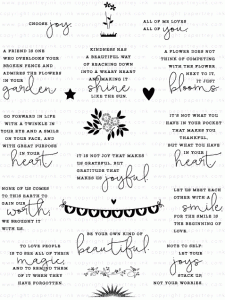 CHOOSE joy.
ALL OF ME LOVES
ALL OF you.
A FRIEND IS ONE
WHO OVERLOOKS YOUR
BROKEN FENCE AND
ADMIRES THE FLOWERS
IN YOUR
garden
KINDNESS HAS
A BEAUTIFUL WAY
OF REACHING DOWN
INTO A WEARY HEART
AND MAKING IT
shine
LIKE THE SUN.
A FLOWER DOES NOT
THINK OF COMPETING
WITH THE FLOWER
NEXT TO IT,
IT JUST
blooms.
GO FORWARD IN LIFE
WITH A TWINKLE IN
YOUR EYE AND A SMILE
ON YOUR FACE, AND
WITH GREAT PURPOSE
IN YOUR
heart.
IT IS NOT JOY THAT MAKES
US GRATEFUL, BUT
GRATITUDE THAT
MAKES US joyful.
IT'S NOT WHAT YOU
HAVE IN YOUR POCKET
THAT MAKES YOU
THANKFUL,
BUT WHAT YOU HAVE
IN YOUR
heart.
NONE OF US COMES
TO THIS EARTH TO
GAIN OUR
worth,
WE BROUGHT IT
WITH US.
LET US MEET EACH
OTHER WITH A
smile,
FOR THE SMILE IS
THE BEGINNING OF
LOVE.
BE YOUR OWN KIND OF
beautiful.
TO LOVE PEOPLE
IS TO SEE ALL OF THEIR
magic,
AND TO REMIND THEM
OF IT WHEN THEY
HAVE FORGOTTEN.
NOTE TO SELF:
LET YOUR
joys
STACK UP,
NOT YOUR WORRIES.